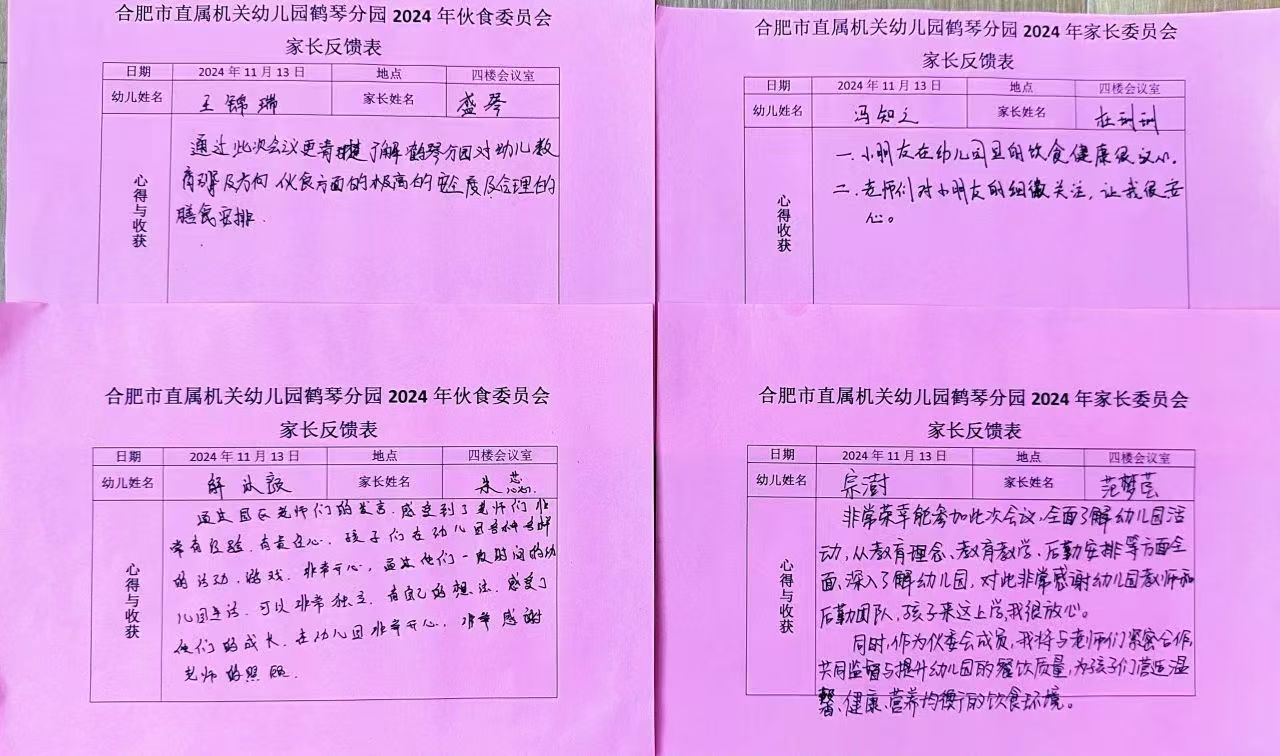 合肥市直属机关幼儿园鹤琴分园 2024 年伙食委员会
家长反馈表
日期 2024 年 11 月 13 日 地点 四楼会议室
幼儿姓名 王锦瑞 家长姓名 盛琴
心得与收获
通过此次会议更清楚了解鹤琴分园对幼儿教
育理及方向 伙食方面的极高的安全度及合理的
膳食安排.
合肥市直属机关幼儿园鹤琴分园 2024 年家长委员会
家长反馈表
日期 2024 年 11 月 13 日 地点 四楼会议室
幼儿姓名 冯知之 家长姓名 杜玥玥
心得收获
一. 小朋友在幼儿园里的饮食健康很放心.
二. 老师们对小朋友的细微关注, 让我很安
心。
合肥市直属机关幼儿园鹤琴分园 2024 年伙食委员会
家长反馈表
日期 2024 年 11 月 13 日 地点 四楼会议室
幼儿姓名 解 家长姓名 朱蕊
心得与收获
通过园长老师们的发言. 感受到了老师们非
常有经验. 有责任心. 孩子们在幼儿园各种各样
的活动. 游戏. 非常开心. 通过他们一段时间的幼
儿园生活. 可以非常独立. 有自己的想法. 感受了
他们的成长. 在幼儿园非常开心. 非常感谢
老师的照顾.
合肥市直属机关幼儿园鹤琴分园 2024 年家长委员会
家长反馈表
日期 2024 年 11 月 13 日 地点 四楼会议室
幼儿姓名 宗澍 家长姓名 范梦芸
心得与收获
非常荣幸能参加此次会议, 全面了解幼儿园活
动, 从教育理念、教育教学、后勤安排等方面全
面、深入了解幼儿园, 对此非常感谢幼儿园教师和
后勤团队, 孩子来这上学, 我很放心。
同时, 作为伙委会成员, 我将与老师们紧密合作,
共同监督与提升幼儿园的餐饮质量, 为孩子们营造温
馨、健康、营养均衡的饮食环境。